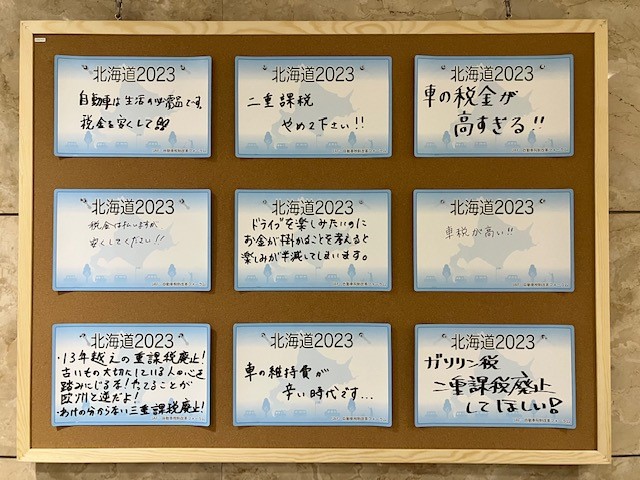 北海道2023
自動車は生活の必需品です。
税金を安くして
北海道2023
二重課税
やめて下さい!!
北海道2023
車の税金が
高すぎる!!
北海道2023
税金は払いますが
安くしてください!!
北海道2023
ドライブを楽しみたいのに
お金が掛かることを考えると
楽しみが半減してしまいます。
北海道2023
車税が高い!!
北海道2023
・13年越えの重課税廃止!
古いもの大切にしている人の心を
踏みにじるな!
欧州と逆だよ!
・わけの分からない三重課税廃止!
北海道2023
車の維持費が
辛い時代です...
北海道2023
ガソリン税
二重課税廃止
してほしい!